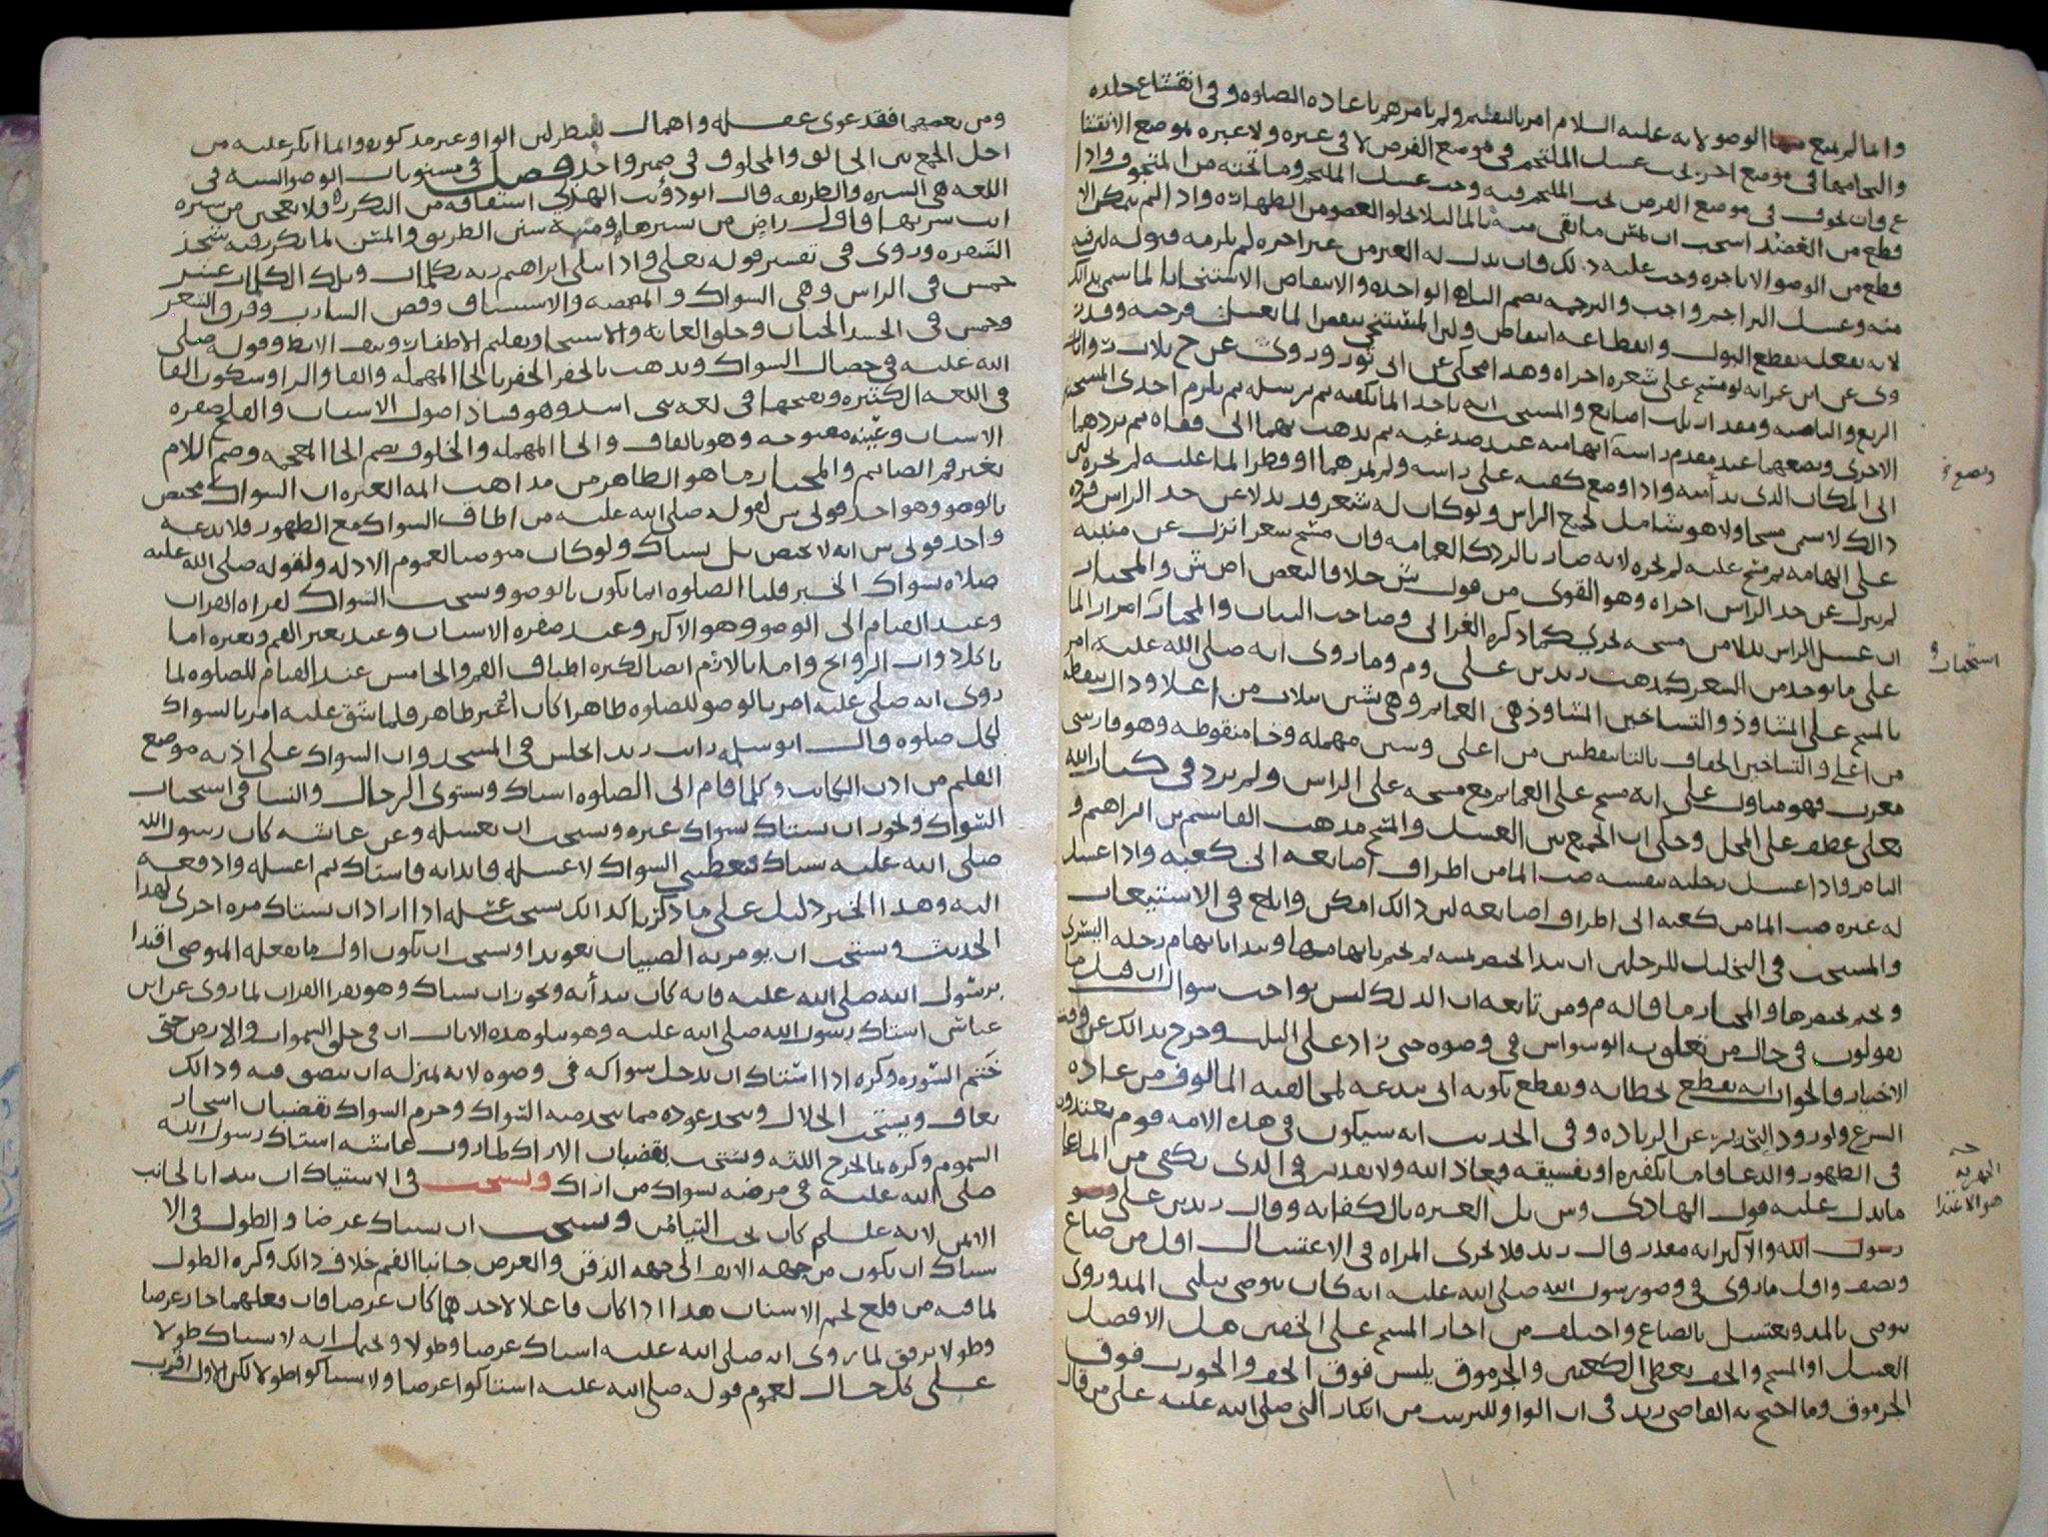 وانما لم يمنع الوضو لانه عليه السلام امر بالتفتيش ولم يامرهم باعاده الصلوه وفي انقشاع جلده
والتحامها في موضع اخر يجب غسل الملتحم في موضع الفرض لا في غيره ولا عبره بموضع الانقشا
ع وان تجوف في موضع الفرض تحت الملتحم فيه وجب غسل الملتحم وما تحته من المتجوف واذا
قطع من العضد استحب ان يمس ما بقي منه بالما ليلا يخلو العضو من الطهاره واذا لم يمكن الا
قطع من الوضو الا باجره وجب عليه ذلك فان بذل له الغير من غير اجره لم يلزمه قبوله
منه وغسل البراجم واجب والبرجمه بضم الباهي الواحده والانتقاص الاستنجا بالما سمي بذلك
لانه بفعله يقطع البول وانقطاعه انتقاص
وى عن ابن عمر انه لو مسح على شعره اجزاه وهذا محكي عن ابي ثور وروى عن ح ثلاث روايات
الربع والناصيه ومقدار ثلاث اصابع والمستحب انه ياخذ الما بكفيه ثم يرسله ثم يلزم احدى المسبحتين
الاخرى ويضعهما عند مقدم راسه ابهاميه عند صدغيه ثم يذهب بهما الى قفاه ثم يردهما
الى المكان الذي بدأ منه واذا وضع كفيه على راسه ولم يمرهما او قطر الما عليه لم يجزه لان
ذالك لا يسمى مسحا ولا هو شامل لجميع الراس ولو كان له شعر قد تدلا عن حد الراس فرده
على الهامه ثم مسح عليه لم يجزه لانه صار بالرد كالعمامه فان مسح شعرا نزل عن منبته
لم ينزل عن حد الراس اجزاه وهو القوى من قول ش خلافا لبعض اص ش والمختار
ان غسل الراس بدلا من مسحه يجزي كما ذكره الغزالي وصاحب البيان والمختار امرار الما
على ما يوجد من الشعر كمذهب زيد بن علي وم وما روى انه صلى الله عليه امر
بالمسح على المشاوذ والتساخين المشاوذ هي العمايم وهي بشين بثلاث من اعلا وذال بنقطه
من اعلى والتساخين الخفاف بالتا بنقطتين من اعلى وسين مهمله وخا منقوطه وهو فارسى
معرب فهو متاول على انه مسح على العمايم مع مسحه على الراس ولم يرد في كتاب الله
تعلى عطف على المحل وحكى ان الجمع بين الغسل والمسح مذهب القاسم بن ابراهيم و
الناصر واذا غسل رجليه بنفسه صب الما من اطراف اصابعه الى كعبيه واذا غسل
له غيره صب الما من كعبه الى اطراف اصابعه لان ذالك امكن وابلغ في الاستيعاب
والمستحب في التخليل للرجلين ان يبدا بخنصر يمينه ثم يختم بابهامها ويبدا بابهام رجله اليسرى
ويختم بخنصرها والمختار ما قاله م ومن تابعه ان الدلك ليس بواجب سوال ان قيل ما
تقولون في حال من تعلق به الوسواس في وضوه حتى زاد على الثلث وخرج بذالك عن وقت
الاختيار فالجواب انه يقطع بخطائه ويقطع بكونه اتى ببدعه لمخالفته المالوف من عاده
الشرع ولورود التحذير عن الزياده وفي الحديث انه سيكون في هذه الامه قوم يعتدون
في الطهور والدعا فاما تكفيره او تفسيقه فمعاذ الله ولا تقدير في الذى يكفى من الما على
ما يدل عليه قول الهادى وش بل العبره بالكفايه وقال زيد بن على وضو
رسول الله والاكثر انه مقدر قال زيد فلا يجزى المراه في الاغتسال اقل من صاع
ونصف واقل ما روى في وضو رسول الله صلى الله عليه انه كان يتوضى بثلثى المد وروى
يتوضى بالمد ويغتسل بالصاع واختلف من اجاز المسح على الخفين هل الافضل
الغسل او المسح والخف يغطى الكعبين والجرموق يلبس فوق الخف والجورب فوق
الجرموق وما احتج به القاضى زيد في ان الواو للترتيب من انكار النبى صلى الله عليه على من قال
ويضع
استحباب
التهويه
هو الاعتدا
ومن يعصهما فقد غوى غفله واهمال للنظر لان الواو غير مذكوره وانما انكر عليه من
اجل الجمع بين الخالق والمخلوق في ضمير واحد فصل في مسنونات الوضو السنه في
اللغه هي السيره والطريقه قال ابو ذؤيب الهذلي اشتقاقه من التكرر فلا تعجبن من سيره
انت سرتها فاول راض من سيرها ومنه سنن الطريق والمسن لما يكرر فيه شحذ
الشفره وروى في تفسير قوله تعلى واذ ابتلى ابراهيم ربه بكلمات وتلك الكلمات عشر
خمس في الراس وهى السواك والمضمضه والاستنشاق وقص الشارب وفرق الشعر
وخمس في الجسد الختان وحلق العانه والاستنجا وتقليم الاظفار ونتف الابط وقوله صلى
الله عليه في خصال السواك ويذهب بالحفر الحفر بالحا المهمله والفا والرا وسكون الفا
في اللغه الكثيره وبفتحها في لغه بنى اسد وهو فساد اصول الاسنان والقلح صفره
الاسنان وعينه مفتوحه وهو بالقاف والحا المهمله والخلوف بضم الخا المعجمه وضم اللام
تغير فم الصايم والمختار ما هو الظاهر من مذاهب ايمه العتره ان السواك مختص
بالوضو وهو احد قولى ش لقوله صلى الله عليه من اطاق السواك مع الطهور فلا يدعه
واحد قولى ش انه لا يختص بل يستاك ولو كان متوضيا لعموم الادله ولقوله صلى الله عليه
صلاه بسواك الخبر قلنا الصلوه انما يكون بالوضو ويستحب السواك لقراه القران
وعند القيام الى الوضو وهو الاكبر وعند صفره الاسنان وعند تغير الفم وتغيره اما
باكل ذوات الروايح واما بالازم ايضا لكثره اطباق الفم والخامس عند القيام للصلوه لما
روى انه صلى عليه امر بالوضو للصلوه طاهرا كان او غير طاهر فلما شق عليه امر بالسواك
لكل صلوه قال ابو سلمه رايت زيدا يجلس في المسجد وان السواك على اذنه موضع
القلم من اذن الكاتب وكلما قام الى الصلوه استاك ويستوى الرجال والنسا في استحباب
السواك ويجوز ان يستاك بسواك غيره ويستحب ان يغسله وعن عائشه كان رسول الله
صلى الله عليه يستاك فيعطيني السواك لاغسله فابدا به فاستاك ثم اغسله وادفعه
اليه وهذا الخبر دليل على ما ذكرنا كذالك يستحب غسله اذا اراد ان يستاك مره اخرى لهذا
الحديث ويستحب ان يومر به الصبيان تعويدا ويستحب ان يكون اول ما يفعله المتوضى اقتدا
برسول الله صلى الله عليه فانه كان يبدأ به ويجوز ان يستاك وهو يقرا القران لما روى عن ابن
عباس استاك رسول الله صلى الله عليه وهو يتلو هذه الايات ان في خلق السموات والارض حتى
ختم السوره وكره اذا استاك ان يدخل سواكه في وضوه لانه بمنزله ان يبصق فيه وذالك
يعاف ويستحب الخلال ويتخذ عوده مما يتخذ منه السواك وحرم السواك بقضبان اشجار
السموم وكره بما يجرح اللثه ويستحب بقضبان الاراك لما روت عائشه استاك رسول الله
صلى الله عليه في مرضه بسواك من اراك ويستحب في الاستياك ان يبدا بالجانب
الايمن لانه علسلم كان يحب التيامن ويستحب ان يستاك عرضا والطول في الا
ستاك ان يكون من جهه الانف الى جهه الذقن والعرض جانبا الفم خلاف ذالك وكره الطول
لما فيه من قلع لحم الاسنان هذا اذا كان فاعلا لاحدهما كان عرضا فان فعلهما جاز عرضا
وطولا برفق لما روى انه صلى الله عليه استاك عرضا وطولا ويحتمل انه لا يستاك طولا
على كل حال لعموم قوله صلى الله عليه استاكوا عرضا ولا تستاكوا طولا لكن الاول اقرب